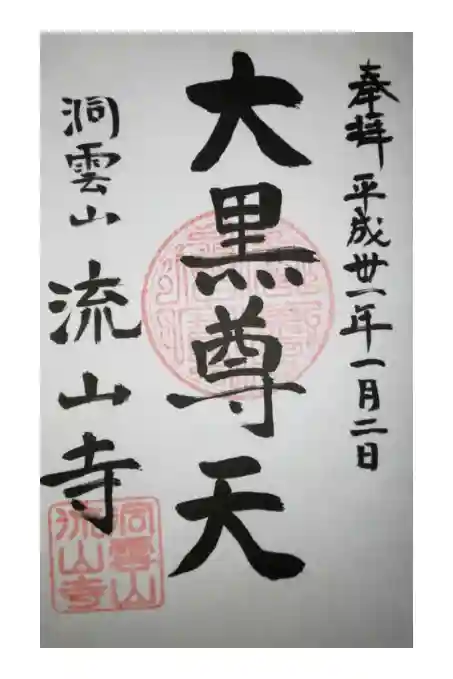 奉拝 平成丗一年一月二日
大黒尊天
洞雲山 流山寺
洞雲山
流山寺